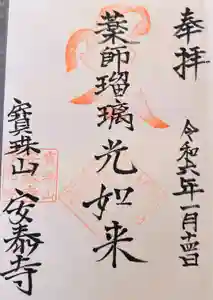 奉拝
令和六年一月十四日
薬師瑠璃光如来
寳珠山 安泰寺